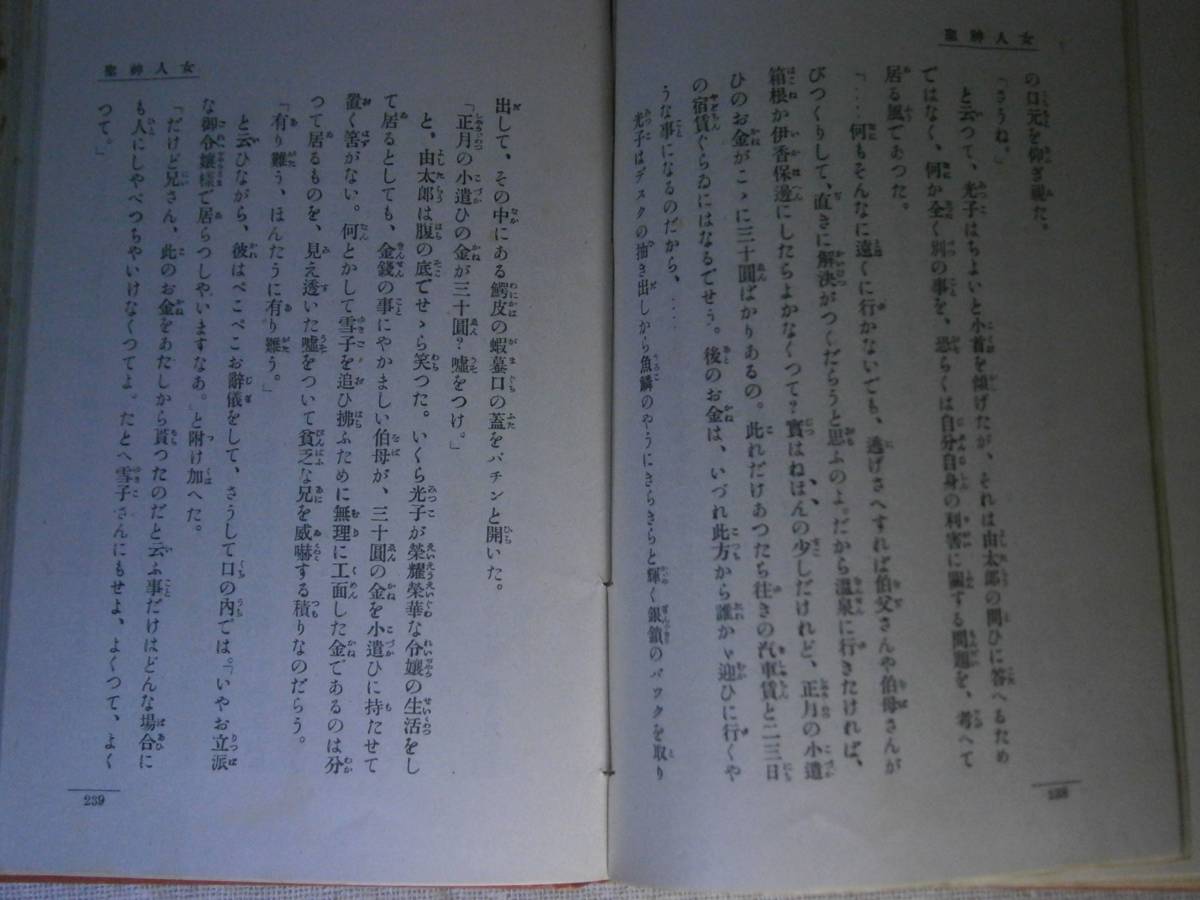 女人神聖
の口元を仰ぎ視た。
「さうね。」
と云つて、光子はちよいと小首を傾げたが、それは由太郎の問ひに答へるため
ではなく、何か全く別の事を、恐らくは自分自身の利害に關する問題を、考へて
居る風であつた。
「‥‥何もそんなに遠くに行かないでも、逃げさへすれば伯父さんや伯母さんが
びつくりして、直きに解決がつくだらうと思ふのよ。だから温泉に行きたければ、
箱根か伊香保邊にしたらよかなくつて？實はねほんの少しだけれど、正月の小遣
ひのお金がこゝに三十圓ばかりあるの。此れだけあつたら往きの汽車賃と二三日
の宿賃ぐらゐにはなるでせう。後のお金は、いづれ此方から誰かゞ迎ひに行くや
うな事になるのだから、‥‥
光子はデスクの抽き出しから魚鱗のやうにきらきらと輝く銀鎖のバツクを取り
238
女人神聖
出して、その中にある鰐皮の蝦蟇口の蓋をパチンと開いた。
「正月の小遣ひの金が三十圓？嘘をつけ。」
と、由太郎は腹の底でせゝら笑つた。いくら光子が榮耀榮華な令孃の生活をし
て居るとしても、金錢の事にやかましい伯母が、三十圓の金を小遣ひに持たせて
置く筈がない。何とかして雪子を追ひ拂ふために無理に工面した金であるのは分
つて居るものを、見え透いた嘘をついて貧乏な兄を威嚇する積りなのだらう。
「有り難う、ほんたうに有り難う。」
と云ひながら、彼はぺこぺこお辭儀をして、さうして口の内では。「いやお立派
な御令孃樣で居らつしやいますなあ。」と附け加へた。
「だけど兄さん、此のお金をあたしから貰つたのだと云ふ事だけはどんな場合に
も人にしやべつちやいけなくつてよ。たとへ雪子さんにもせよ、よくつて、よく
つて。」
239